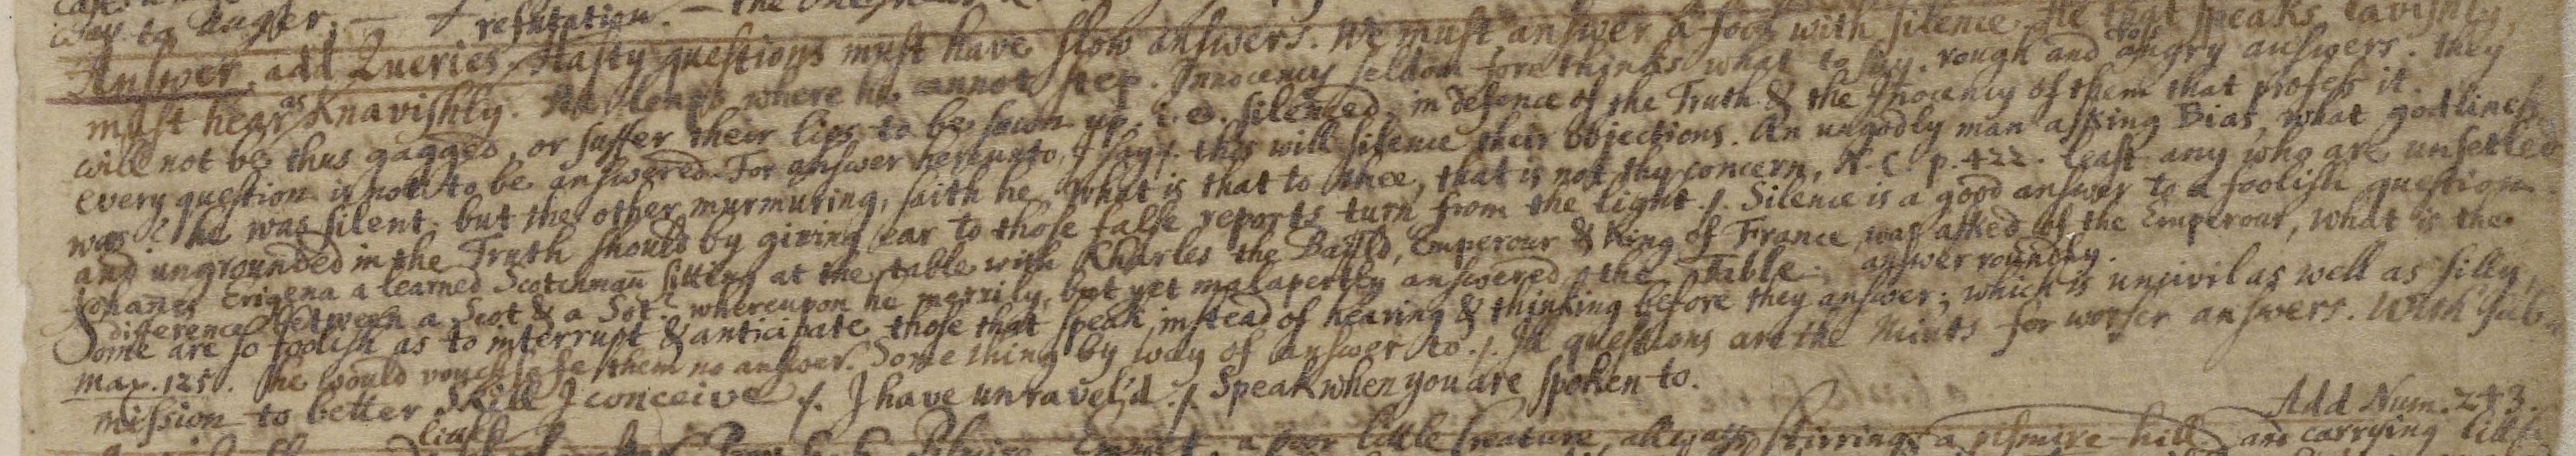 way to Anger, refutation. the
Answer. add Queries. Hasty questions must have slow answers. We must answer a fool with silence. He that speaks lavishly,
must hear as Knavishly. He longs where he cannot step. Innocency seldom forethinks what to say. rough and angry answers. they
will not be thus gagged, or suffer their lips to be sown up, i.e. silenced, in defence of the Truth & the Inocency of them that profess it.
every question is not to be answered. For answer hereunto, I say /. this will silence their objections. An ungodly man asking Bias, what godliness
was? he was silent; but the other murmuring, saith he, what is that to thee, that is not thy concern, N.C. p. 422. least any who are unsetled
and ungrounded in the Truth should by giving ear to those false reports turn from the light. /. Silence is a good answer to a foolish question
Johanes Erigena a learned Scotchman sitting at the table with Kharles the Bauld, Emperour & King of France, was asked of the Emperour, what is the
difference between a Scot & a Sot? whereupon he merrily, but yet malapertly answered, the Table. answer roundly.
Some are so foolish as to interrupt & anticipate those that speak, instead of hearing & thinking before they answer; which is uncivil as well as silly,
max. 125. he would vouchsafe them no answer. Some thing by way of answer to. /. Ill questions are the Mints for worser answers. With sub-
mission to better Skill I conceive /. I have unravel'd /. Speak when you are spoken to.
Add Num. 243.
Pismire Emmet, a poor little Creature, allways stirring, a pismire-hill and carrying